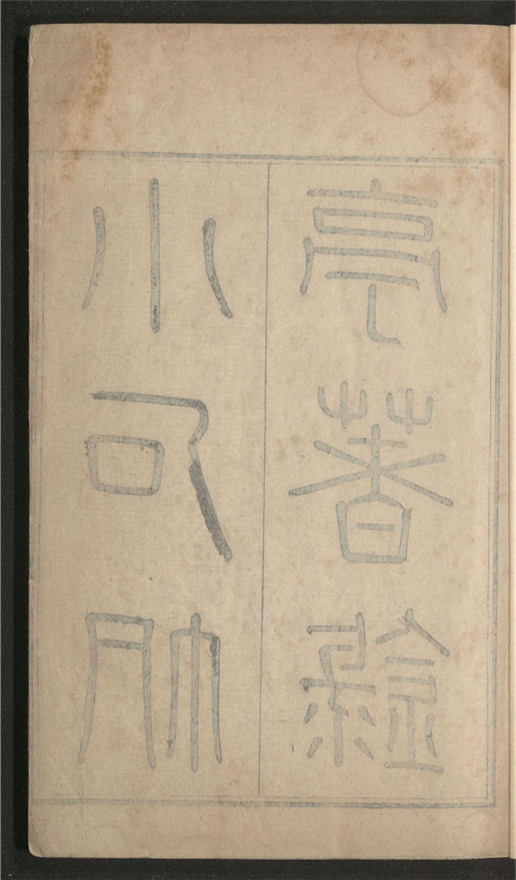 小石帆
亭著錄